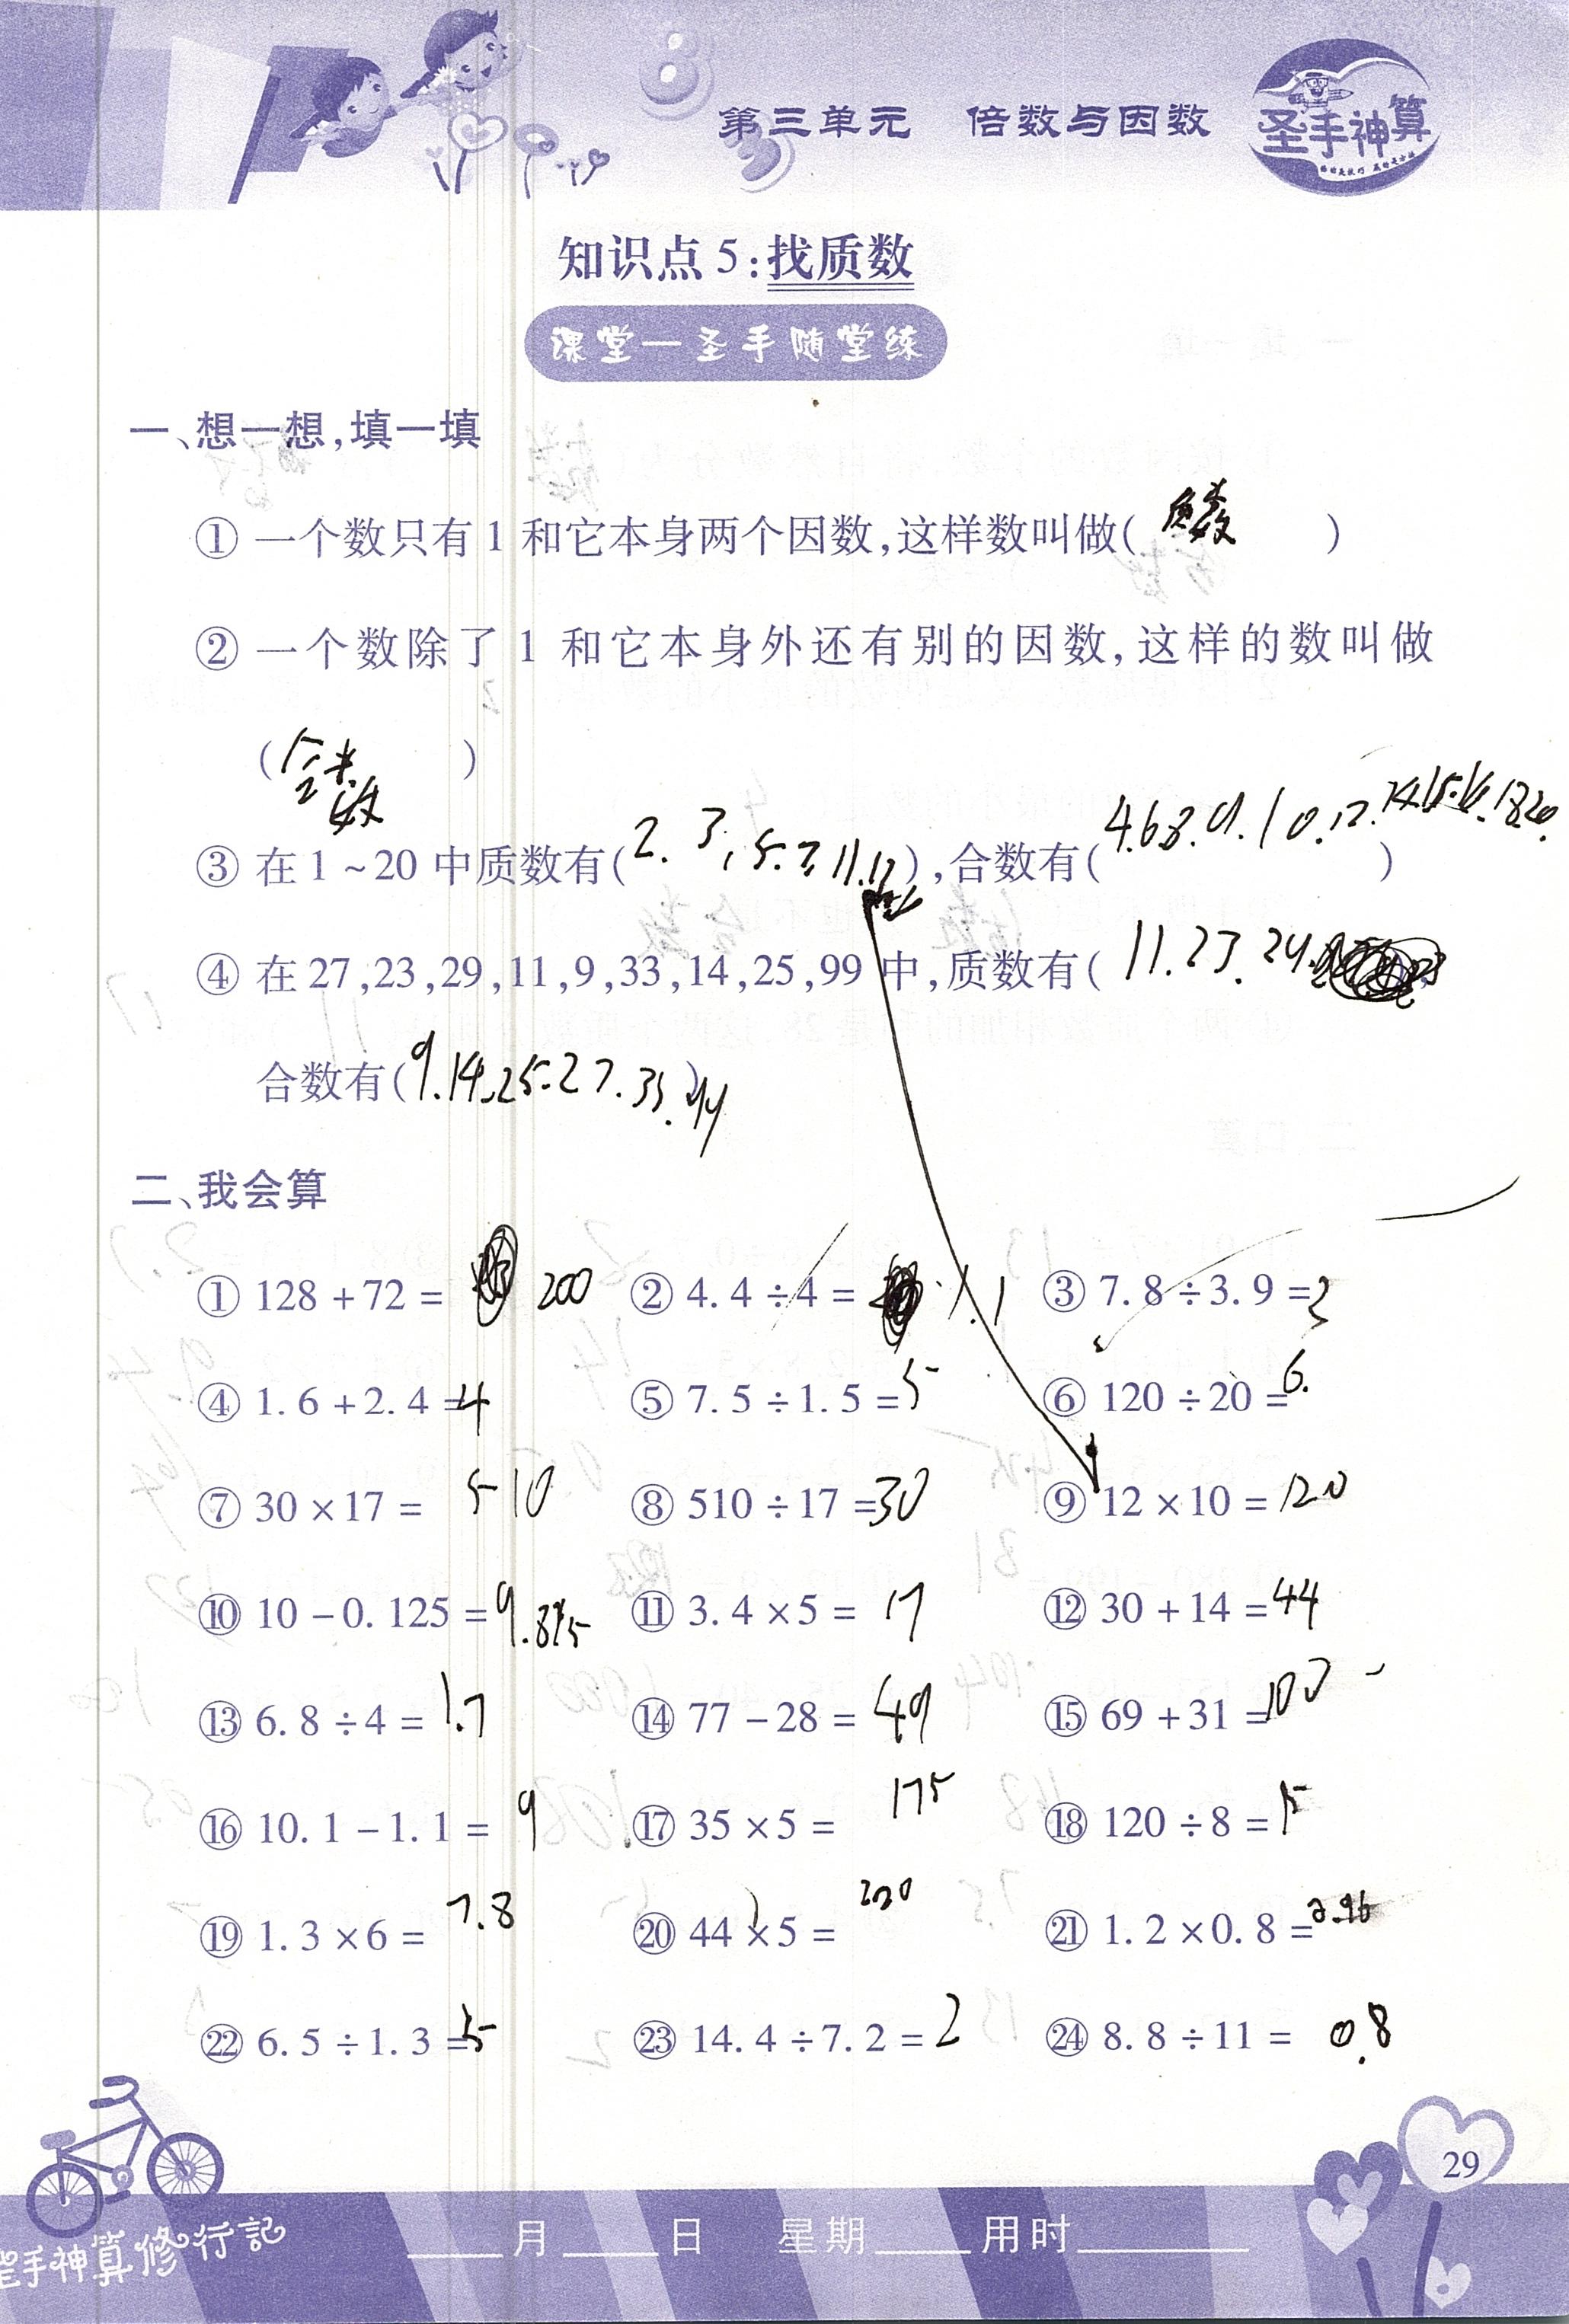 第三单元 倍数与因数
圣手神算
知识点5:找质数
课堂一圣手随堂练
一、想一想,填一填
① 一个数只有1和它本身两个因数,这样数叫做( 质数 )
② 一个数除了1和它本身外还有别的因数,这样的数叫做
( 合数 )
③ 在1~20中质数有(2.3,5.7,11.13),合数有(4.6.8.9.10.12.14.15.16.18.20.)
④ 在27,23,29,11,9,33,14,25,99中,质数有( 11.23.29
合数有(9.14.25.27.33.99
二、我会算
① 128+72= 200 ② 4.4÷4= 1.1 ③ 7.8÷3.9=2
④ 1.6+2.4=4 ⑤ 7.5÷1.5=5 ⑥ 120÷20=6.
⑦ 30×17= 510 ⑧ 510÷17=30 ⑨ 12×10=120
⑩ 10-0.125=9.875 ⑪ 3.4×5= 17 ⑫ 30+14=44
⑬ 6.8÷4=1.7 ⑭ 77-28=49 ⑮ 69+31=100
⑯ 10.1-1.1= 9 ⑰ 35×5= 175 ⑱ 120÷8=15
⑲ 1.3×6= 7.8 ⑳ 44×5= 220 ㉑ 1.2×0.8=0.96
㉒ 6.5÷1.3=5 ㉓ 14.4÷7.2=2 ㉔ 8.8÷11= 0.8
29
圣手神算修行記
____月____日 星期____用时______